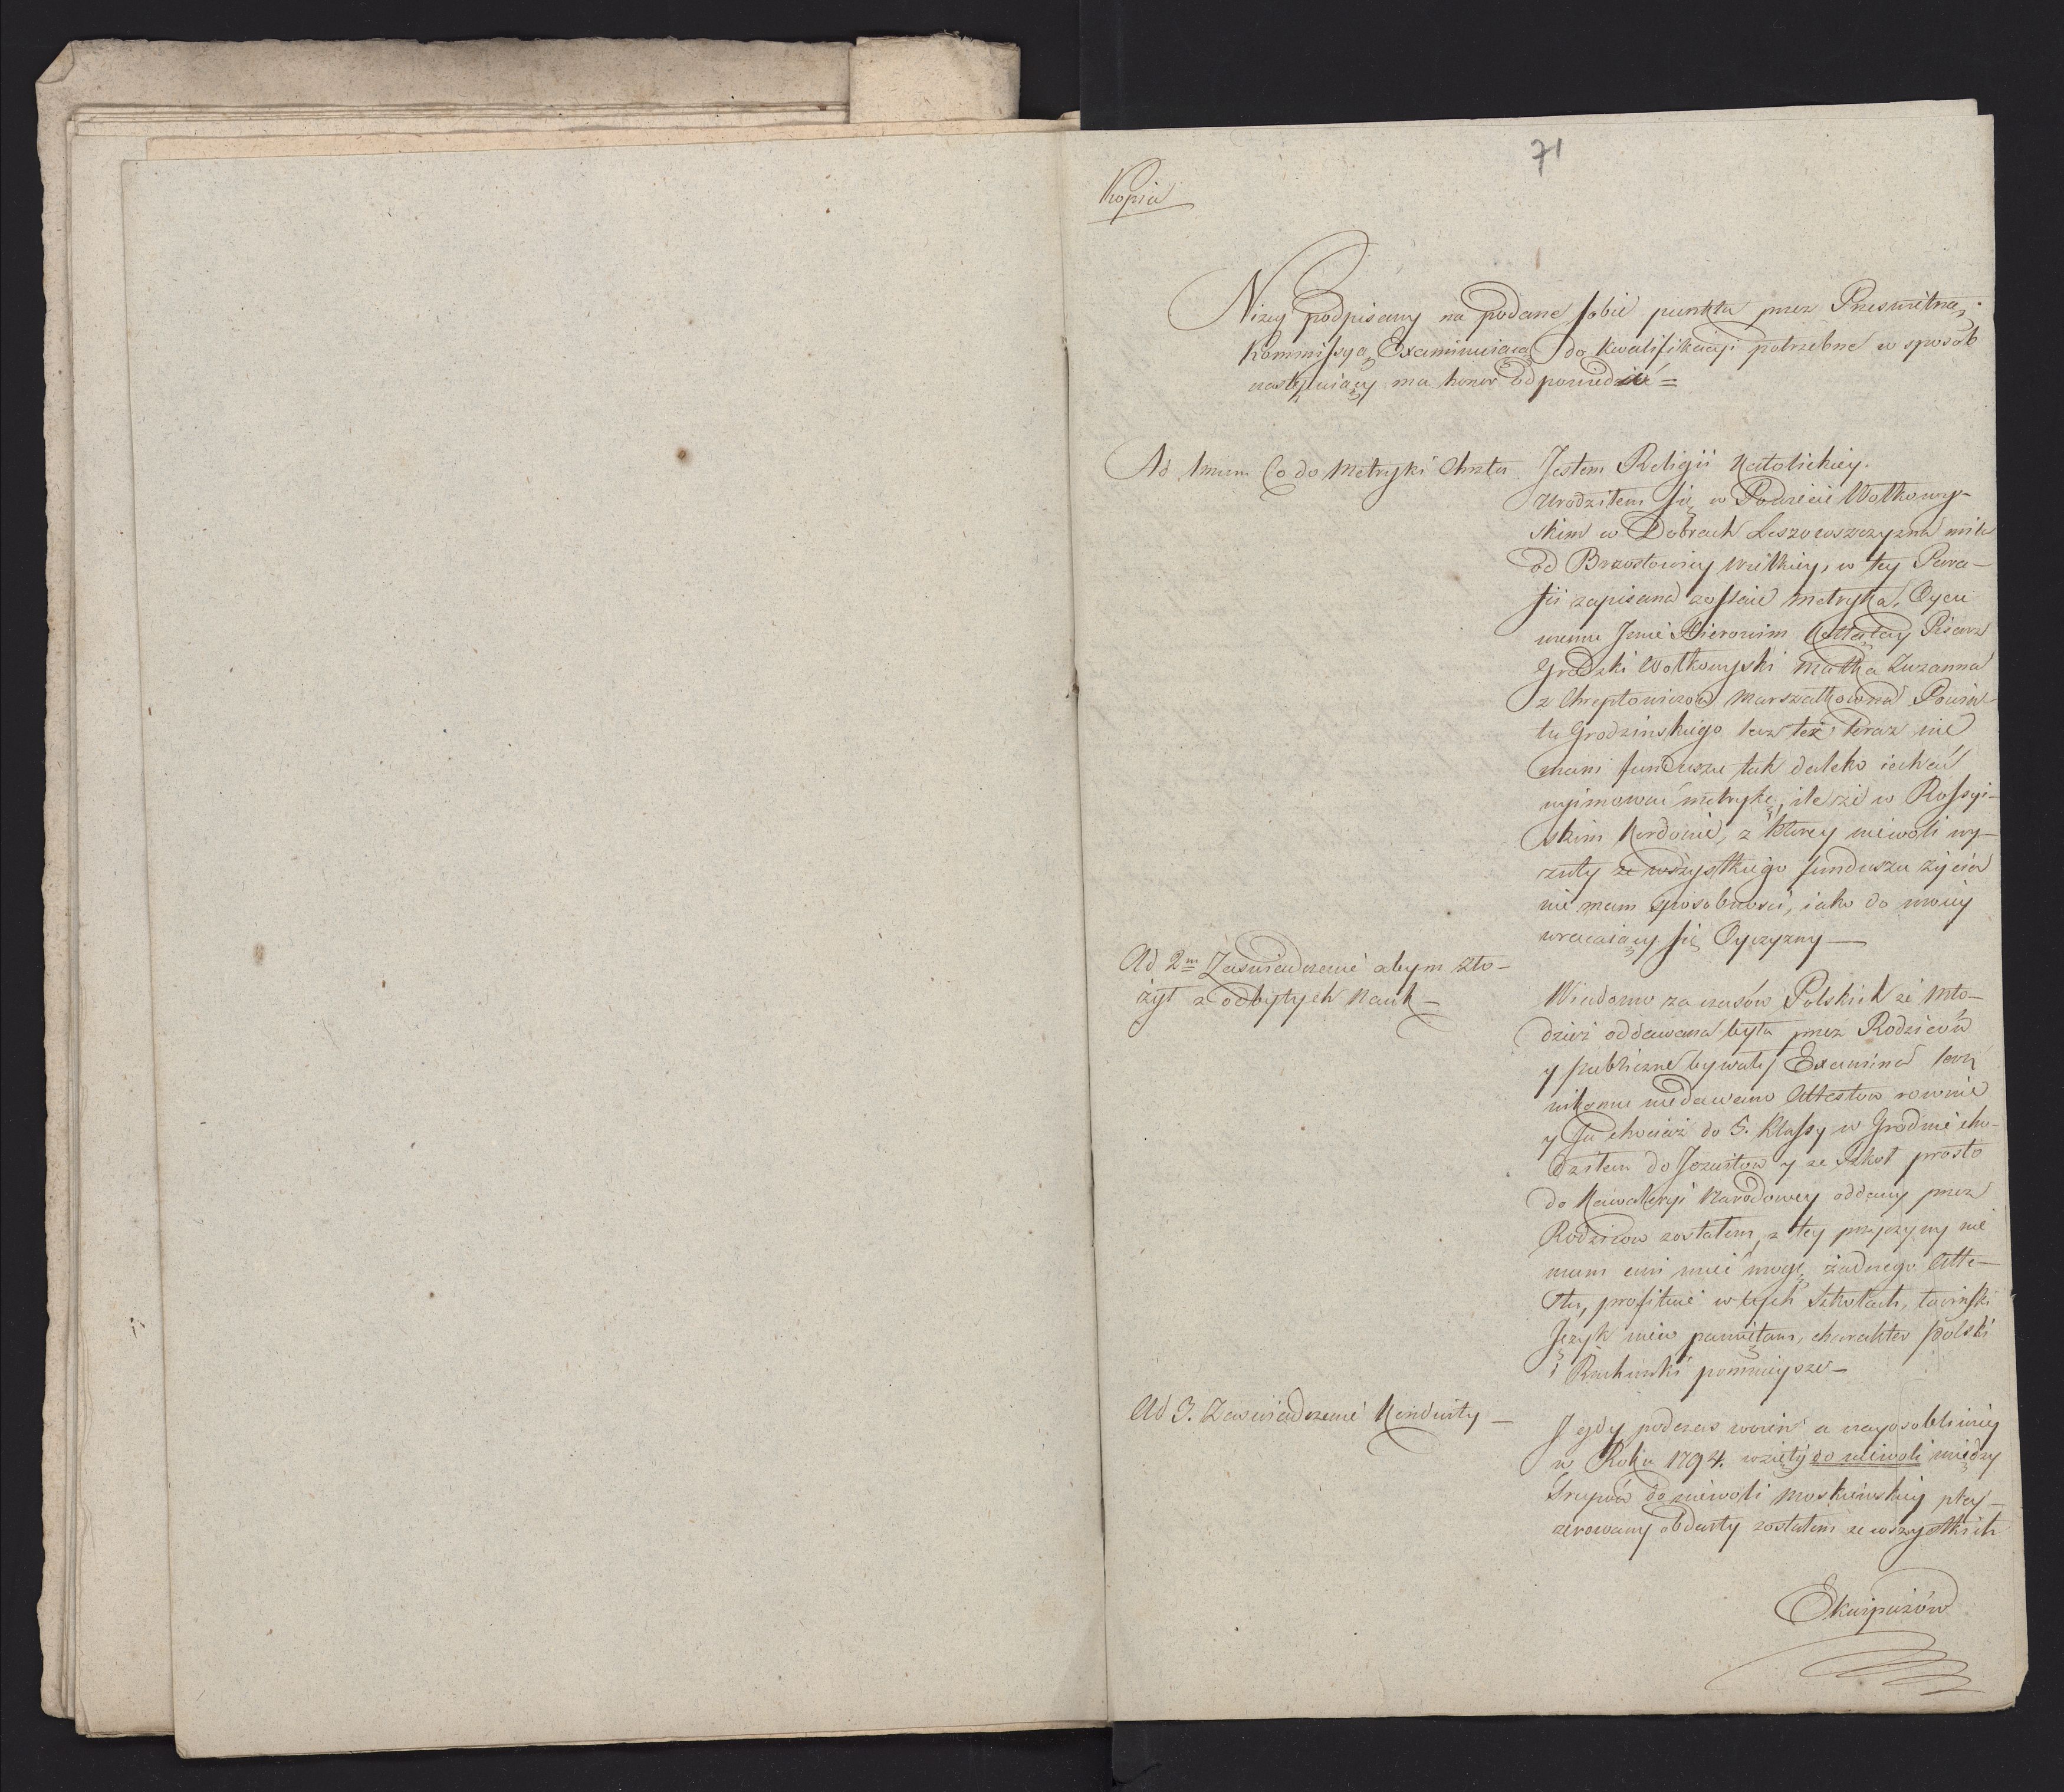 71
Kopia
Niżey podpisany na podane sobie punkta przez Prześwietną
Kommissyą Examinuiącą do kwalifikacyi potrzebne w sposób
następuiący ma honor odpowiedzieć =
Ad 1mum Co do Metryki Chrztu
Jestem Religii Katolickiey.
Urodziłem się w Powiecie Wołkowy-
skim w Dobrach Leszowszczyzna mila
od Brzostowicy Wielkiey, w tey Para-
fii zapisana zostaie Metryka, Oycu
memu Imie Hieronim Pisarz
Grodzki Wołkowyski Matka Zuzanna
z Chreptowiczów Marszałkowna Powia-
tu Grodzińskiego lecz też teraz nie
mam funduszu tak daleko iechać
wyimować metrykę, ile że w Rossyi-
skim Kordonie, z którey niewoli wy-
zuty ze wszystkiego funduszu życia
nie mam sposobności, iako do moiey
wracaiący się Oyczyzny —
Ad 2m Zaświadczenie abym zło-
żył z odbytych Nauk —
Wiadomo za czasów Polskich że Mło-
dzież oddawana była przez Rodziców
y publiczne bywały Examina lecz
nikomu niedawano Attestów rownie
y Ja chociaż do 5. Klassy w Grodnie cho-
dziłem do Jezuitow y ze Szkoł prosto
do Kawaleryi Narodowey oddany przez
Rodzicow zostałem, z tey przyczyny nie
mam ani mieć mogę żadnego Atte-
stu, profituie w tych Szkołach, łaciński
Język nieco pamiętam, charakter polski
i Rachunki pomnieysze —
Ad 3. Zaswiadczenie Konduity —
J gdy podczas woien a nayosobliwiey
w Roku 1794. wzięty do niewoli między
Trupów do niewoli Moskiewskiey pley-
zerowany obdarty zostałem ze wszystkich
Ekwipażów